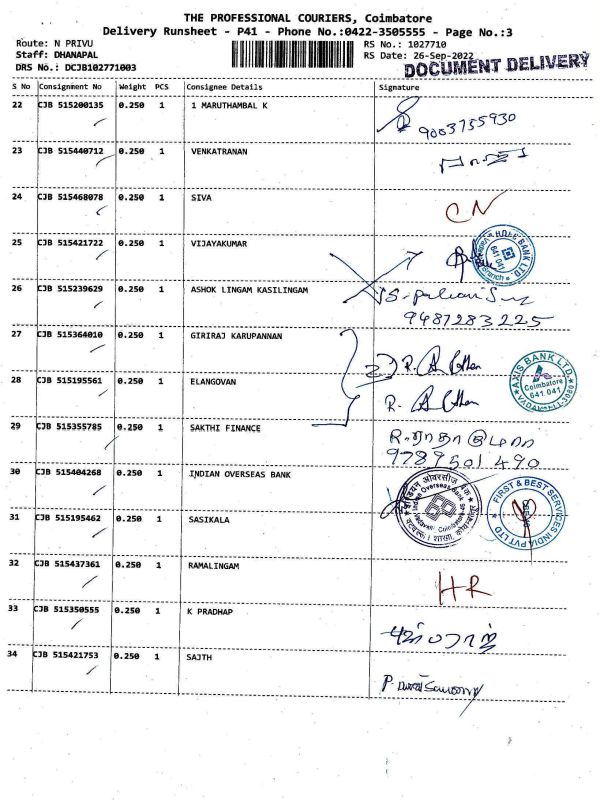 THE PROFESSIONAL COURIERS, Coimbatore
Delivery Runsheet - P41 - Phone No.:0422-3505555 - Page No.:3
Route: N PRIVU RS No.: 1027710
Staff: DHANAPAL RS Date: 26-Sep-2022
DRS No.: DCJB102771003 DOCUMENT DELIVERY
S No Consignment No Weight PCS Consignee Details Signature
22 CJB 515200135 0.250 1 1 MARUTHAMBAL K
9003755930
23 CJB 515440712 0.250 1 VENKATRANAN
24 CJB 515468078 0.250 1 SIVA CN
25 CJB 515421722 0.250 1 VIJAYAKUMAR
BANK LTD. 641 041 Branch
26 CJB 515239629 0.250 1 ASHOK LINGAM KASILINGAM
9487283225
27 CJB 515364010 0.250 1 GIRIRAJ KARUPANNAN
AXIS BANK LTD. Coimbatore 641 041
28 CJB 515195561 0.250 1 ELANGOVAN
29 CJB 515355785 0.250 1 SAKTHI FINANCE
9789501490
30 CJB 515404268 0.250 1 INDIAN OVERSEAS BANK
इंडियन ओवरसीज़ बैंक Indian Overseas Bank
FIRST & BEST SERVICES INDIA PVT LTD
31 CJB 515195462 0.250 1 SASIKALA
32 CJB 515437361 0.250 1 RAMALINGAM HR
33 CJB 515350555 0.250 1 K PRADHAP
34 CJB 515421753 0.250 1 SAJTH